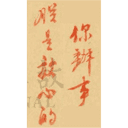 你辦事
朕是放心的